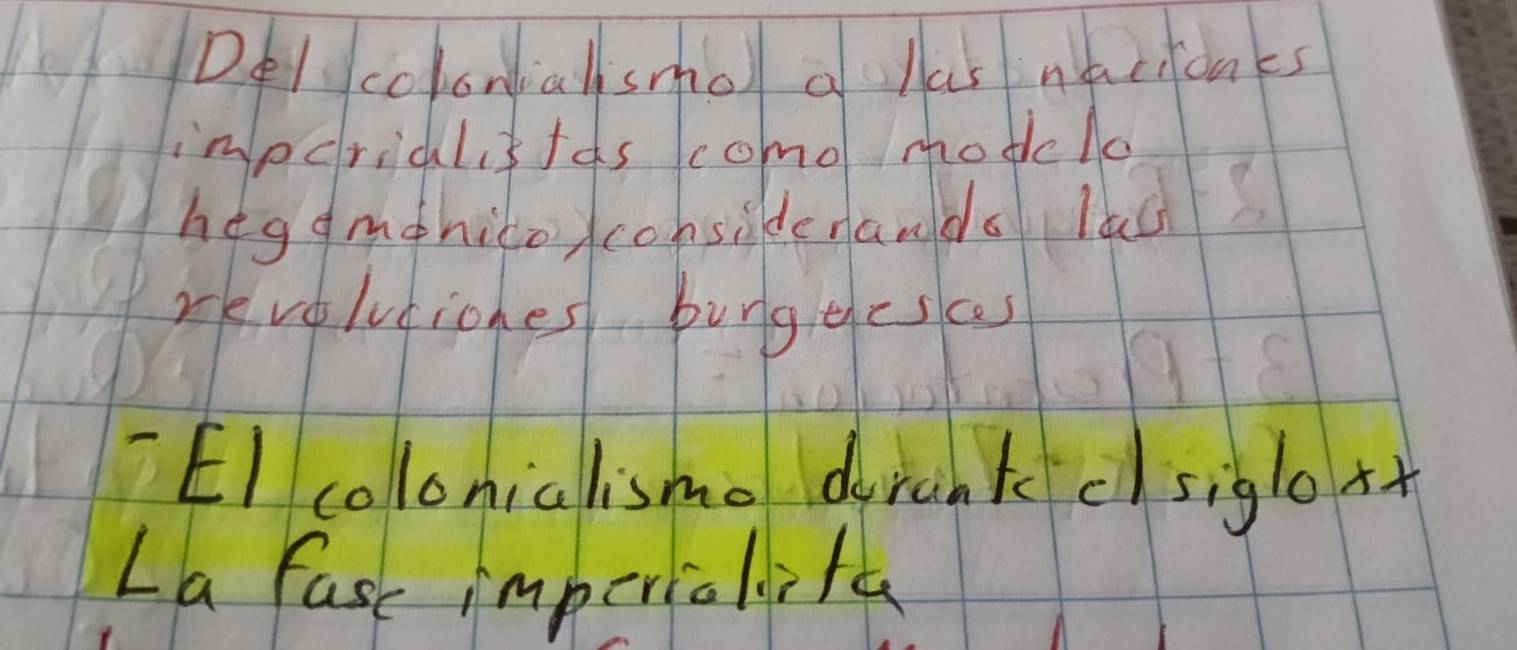 Del colonialismo a las naciones
imperialistas como modelo
hegemónico, considerando las
revoluciones burguesas
- El colonialismo durante el siglo xx
La fase imperialista